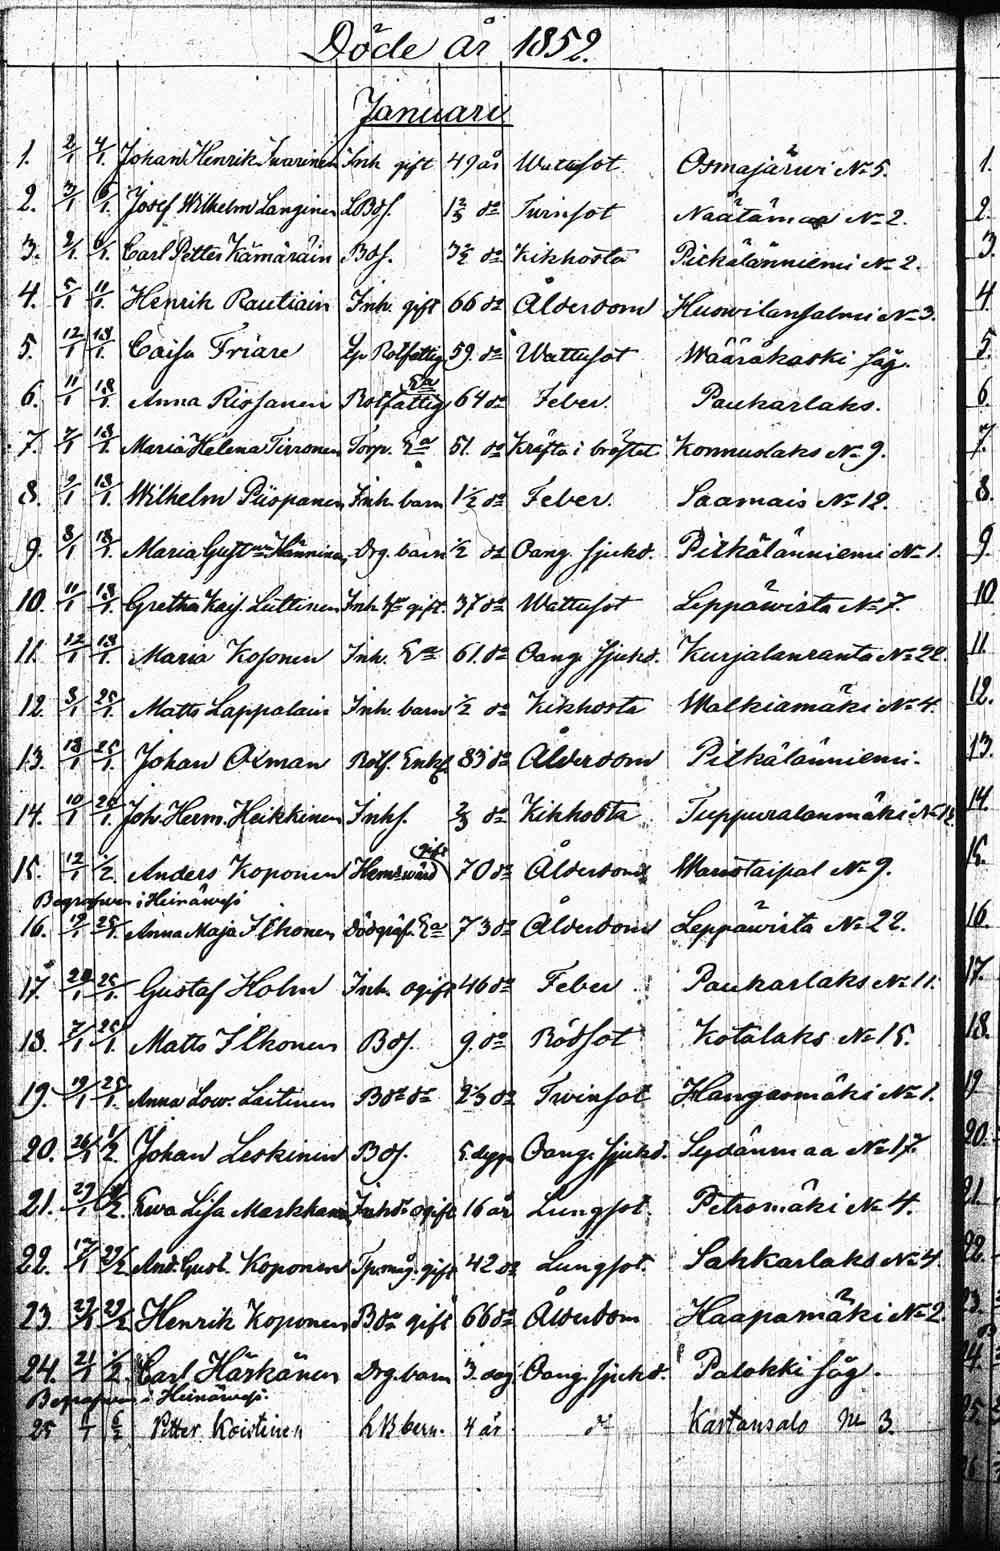 Döde år 1852.
Januari
1. 2/1 4/1. Johan Henrik Inarinen Inh. gift 49 år Wattusot Osmajärwi No 5.
2. 3/1 6/1. Josef Wilhelm Langinen LBds. do Twinsot Näätämaa No 2.
3. 2/1 6/1. Carl Petter Kämäräin Bds. do Kikhosta Pitkälänniemi No 2.
4. 5/1 11/1. Henrik Rautiain Inh. gift 66 do Ålderdom Huswilansalmi No 3.
5. 12/1 18/1. Caisa Friare Rotfattig 59. do Wattusot Wääräkoski såg.
6. 11/1 18/1. Anna Rissanen Rotfattig Ea 64 do Feber. Paukarlaks.
7. 7/1 18/1. Maria Helena Tirronen Torp. Ea 51. do Kräfta i bröstet Konnuslaks No 9.
8. 9/1 18/1. Wilhelm Piispanen Inh. barn 1 1/2 do Feber. Saamais No 12.
9. 8/1 18/1. Maria Gust:va Hänninen Drg. barn 1/2 do Oang. sjukd. Pitkälänniemi No 1.
10. 11/1 18/1. Gretha Kajs. Luttinen Inh. gift. 37 do Wattusot Leppäwirta No 7.
11. 12/1 18/1. Maria Kosonen Inh. Ea 61. do Oang. sjukd. Kurjalanranta No 22.
12. 8/1 25/1. Matts Lappalain Inh. barn 1/2 do Kikhosta Walkiamäki No 4.
13. 18/1 25/1. Johan Oxman Rotf. Enkl. 83 do Ålderdom Pitkälänniemi.
14. 10/1 25/1. Joh. Herm. Heikkinen Inhs. 2/3 do Kikhosta Tuppuralanmäki No 12.
15. 12/1 1/2. Anders Koponen Hem:swärd gift 70 do Ålderdom Waristaipal No 9.
Begrafwen i Heinäwesi
16. 19/1 25/1. Anna Maja Ilkonen Dödgräf. Ea 73 do Ålderdom Leppäwirta No 22.
17. 20/1 25/1. Gustaf Holm Inh. ogift 46 do Feber Paukarlaks No 11.
18. 7/1 25/1. Matts Ilkonen Bds. 9. do Rödsot Kotalaks No 15.
19. 19/1 25/1. Anna Low. Laitinen Bdedr 2/3 do Twinsot Hangasmäki No 1.
20. 26/1 1/2. Johan Leskinen Bds. 5. dygn Oang. sjukd. Sydänmaa No 17.
21. 27/1 Ewa Lisa Markkan Inhdr ogift 16 år Lungsot. Petromäki No 4.
22. 17/1 And. Gust. Koponen Tp.måg. gift 42 do Lungsot. Sahkarlaks No 4.
23. Henrik Koponen Bde gift 66 do Ålderdom Haapamäki No 2.
24. 21/1 1/2. Carl Härkänen Drg. barn 3. dag. Oang. sjukd. Palokki såg.
Begrafwen i Heinäwesi.
25 Petter Koistinen LB barn. 4 år do Kartansalo No 3.